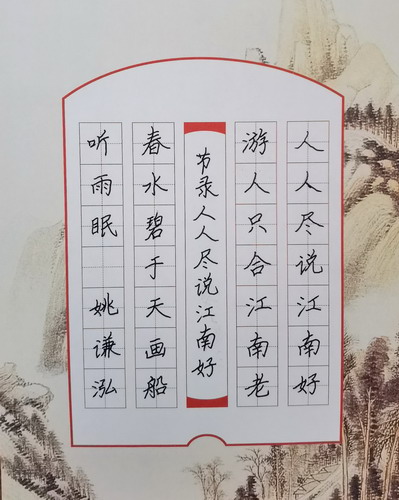 人人尽说江南好
游人只合江南老
节录人人尽说江南好
春水碧于天画船
听雨眠 姚谦泓